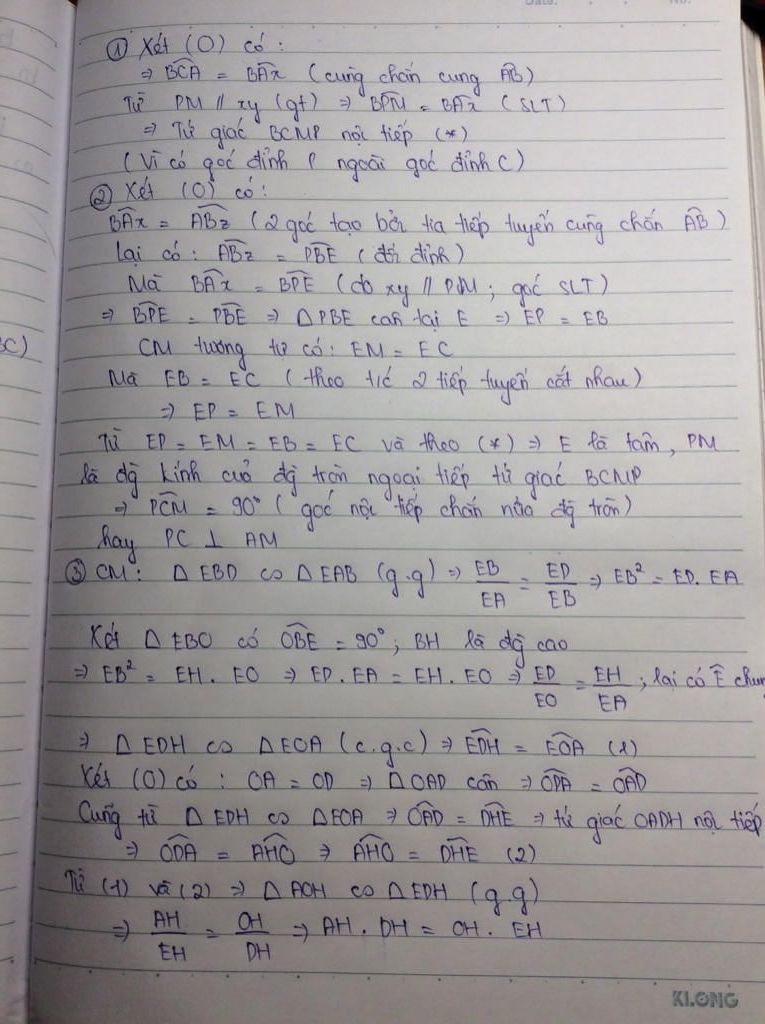 Date: No.
① Xét (O) có :
⇒ \widehat{BCA} = \widehat{BAx} (cùng chắn cung \widehat{AB})
Từ PM // xy (gt) ⇒ \widehat{BPM} = \widehat{BAx} (SLT)
⇒ Tứ giác BCMP nội tiếp (*)
(Vì có góc đỉnh P ngoài góc đỉnh C)
② Xét (O) có :
\widehat{BAx} = \widehat{ABz} (2 góc tạo bởi tia tiếp tuyến cùng chắn \widehat{AB})
Lại có : \widehat{ABz} = \widehat{PBE} (đối đỉnh)
Mà \widehat{BAx} = \widehat{BPE} (do xy // PM ; góc SLT)
⇒ \widehat{BPE} = \widehat{PBE} ⇒ △PBE cân tại E ⇒ EP = EB
BC)
CM tương tự có : EM = EC
Mà EB = EC (theo t/c 2 tiếp tuyến cắt nhau)
⇒ EP = EM
Từ EP = EM = EB = EC và theo (*) ⇒ E là tâm, PM
là đg kính của đg tròn ngoại tiếp tứ giác BCMP
⇒ \widehat{PCM} = 90° (góc nội tiếp chắn nửa đg tròn)
hay PC ⊥ AM
③ CM : △EBD ∽ △EAB (g.g) ⇒ EB/EA = ED/EB ⇒ EB² = ED. EA
Xét △EBO có \widehat{OBE} = 90° ; BH là đg cao
⇒ EB² = EH. EO ⇒ ED. EA = EH. EO ⇒ ED/EO = EH/EA ; lại có \widehat{E} chung
⇒ △EDH ∽ △EOA (c.g.c) ⇒ \widehat{EDH} = \widehat{EOA} (1)
Xét (O) có : OA = OD ⇒ △OAD cân ⇒ \widehat{ODA} = \widehat{OAD}
Cũng từ △EDH ∽ △EOA ⇒ \widehat{OAD} = \widehat{DHE} ⇒ tứ giác OADH nội tiếp
⇒ \widehat{ODA} = \widehat{AHO} ⇒ \widehat{AHO} = \widehat{DHE} (2)
Từ (1) và (2) ⇒ △AOH ∽ △EDH (g.g)
⇒ AH/EH = OH/DH ⇒ AH. DH = OH. EH
KLONG